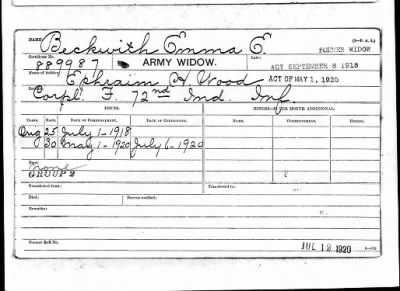 NAME
Beckwith Emma E.
FORMER WIDOW
Certificate No.
889987
ARMY WIDOW.
Law:
ACT SEPTEMBER 8 1916
Name of Soldier:
Ephraim H. Wood
ACT OF MAY 1, 1920
Corpl. F. 72nd Ind. Inf.
ISSUES.
MINORS—$2 PER MONTH ADDITIONAL.
CLASS. RATE. DATE OF COMMENCEMENT. DATE OF CESSATION. NAME. COMMENCEMENT. ENDING.
Aug 25 July 1-1918
30 May 1-1920 July 6-1920
None
GROUP 2
Transferred from:
Transferred to:
Died:
Bureau notified:
Remarks:
Former Roll No.
JUL 12 1920